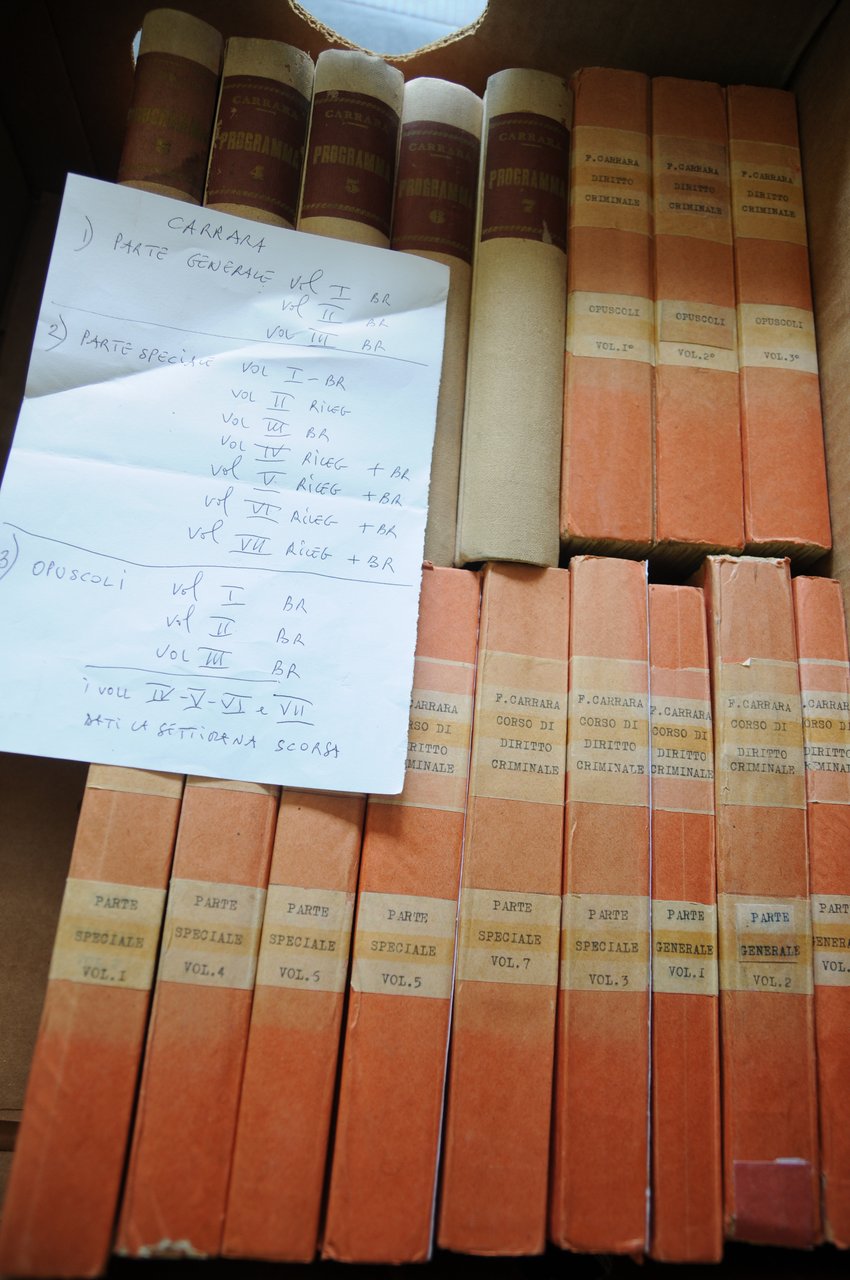 PROGRAMMA
3
CARRARA
PROGRAMMA
4
CARRARA
PROGRAMMA
5
CARRARA
PROGRAMMA
6
CARRARA
PROGRAMMA
7
F.CARRARA
DIRITTO
CRIMINALE
OPUSCOLI
VOL.1°
F.CARRARA
DIRITTO
CRIMINALE
OPUSCOLI
VOL.2°
F.CARRARA
DIRITTO
CRIMINALE
OPUSCOLI
VOL.3°
CARRARA
1) PARTE GENERALE Vol I BR
Vol II BR
VOL III BR
2) PARTE SPECIALE VOL I - BR
VOL II RILEG
VOL III BR
VOL IV RILEG + BR
Vol V RILEG + BR
Vol VI RILEG + BR
Vol VII RILEG + BR
3) OPUSCOLI Vol I BR
Vol II BR
VOL III BR
i VOLL IV-V-VI e VII
DATI LA SETTIMANA SCORSA
PARTE
SPECIALE
VOL.I
PARTE
SPECIALE
VOL.4
PARTE
SPECIALE
VOL.6
CARRARA
CORSO DI
DIRITTO
CRIMINALE
PARTE
SPECIALE
VOL.5
F.CARRARA
CORSO DI
DIRITTO
CRIMINALE
PARTE
SPECIALE
VOL.7
F.CARRARA
CORSO DI
DIRITTO
CRIMINALE
PARTE
SPECIALE
VOL.3
F.CARRARA
CORSO DI
DIRITTO
CRIMINALE
PARTE
GENERALE
VOL.I
F.CARRARA
CORSO DI
DIRITTO
CRIMINALE
PARTE
GENERALE
VOL.2
F.CARRARA
CORSO DI
DIRITTO
CRIMINALE
PARTE
GENERALE
VOL.